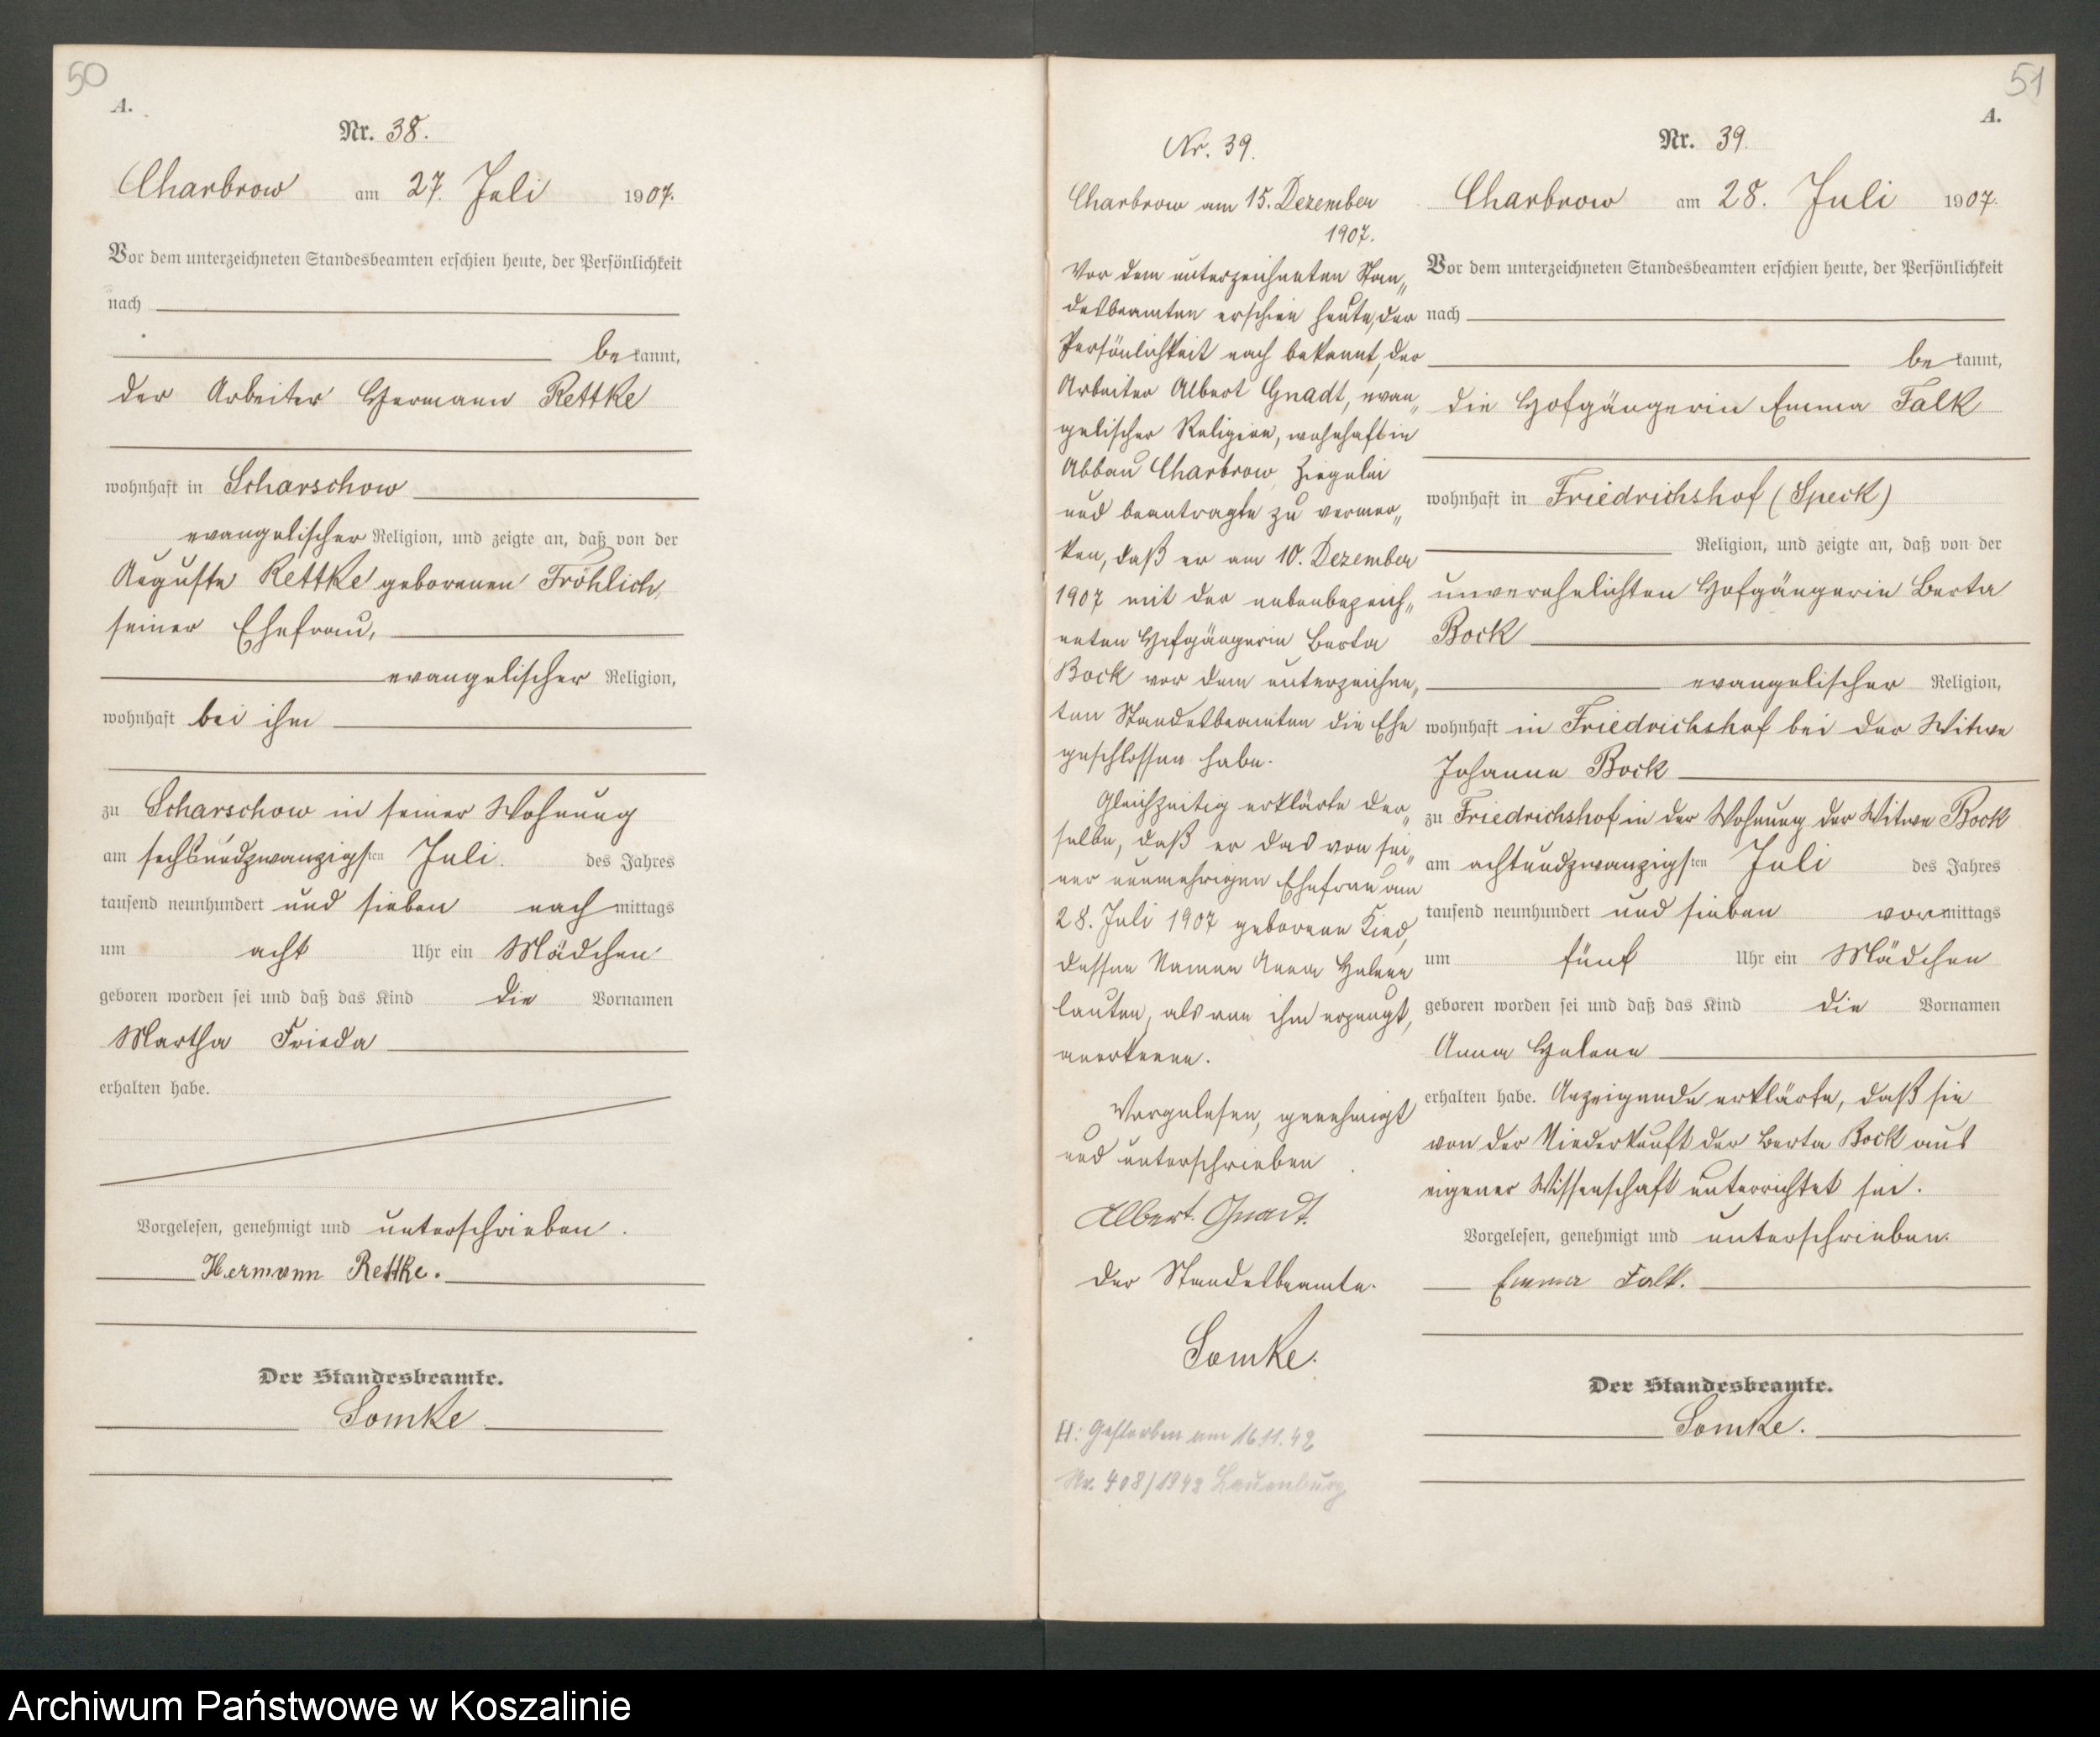 50
A.
Nr. 38.
Charbrow am 27. Juli 1907.
Vor dem unterzeichneten Standesbeamten erschien heute, der Persönlichkeit
nach
bekannt,
der Arbeiter Hermann Rettke
wohnhaft in Scharschow
evangelischer Religion, und zeigte an, daß von der
Auguste Rettke geborenen Fröhlich,
seiner Ehefrau,
evangelischer Religion,
wohnhaft bei ihm
zu Scharschow in seiner Wohnung
am sechsundzwanzigsten Juli des Jahres
tausend neunhundert und sieben nachmittags
um acht Uhr ein Mädchen
geboren worden sei und daß das Kind die Vornamen
Martha Frieda
erhalten habe.
Vorgelesen, genehmigt und unterschrieben.
Hermann Rettke.
Der Standesbeamte.
Somke
Nr. 39.
Charbrow am 15. Dezember
1907.
Vor dem unterzeichneten Stan„
desbeamten erschien heute, der
Persönlichkeit nach bekannt, der
Arbeiter Albert Gnadt, evan„
gelischer Religion, wohnhaft in
Abbau Charbrow, Ziegelei
und beantragte zu vermer„
ken, daß er am 10. Dezember
1907 mit der nebenbezeich„
neten Hofgängerin Berta
Bock vor dem unterzeichne„
ten Standesbeamten die Ehe
geschlossen habe.
Gleichzeitig erklärte der„
selbe, daß er das von sei„
ner nunmehrigen Ehefrau am
28. Juli 1907 geborene Kind,
dessen Namen Anna Helene
lauten, als von ihm erzeugt,
anerkenne.
Vorgelesen, genehmigt
und unterschrieben
Albert Gnadt.
Der Standesbeamte.
Somke.
H: Gestorben am 16.11.42
Nr. 408/1942 Lauenburg
51
A.
Nr. 39
Charbrow am 28. Juli 1907.
Vor dem unterzeichneten Standesbeamten erschien heute, der Persönlichkeit
nach
bekannt,
die Hofgängerin Emma Falk
wohnhaft in Friedrichshof (Speck)
Religion, und zeigte an, daß von der
unverehelichten Hofgängerin Berta
Bock
evangelischer Religion,
wohnhaft in Friedrichshof bei der Witwe
Johanne Bock
zu Friedrichshof in der Wohnung der Witwe Bock
am achtundzwanzigsten Juli des Jahres
tausend neunhundert und sieben vormittags
um fünf Uhr ein Mädchen
geboren worden sei und daß das Kind die Vornamen
Anna Helene
erhalten habe. Anzeigende erklärte, daß sie
von der Niederkunft der Berta Bock aus
eigener Wissenschaft unterrichtet sei.
Vorgelesen, genehmigt und unterschrieben.
Emma Falk.
Der Standesbeamte.
Somke.
Archiwum Państwowe w Koszalinie